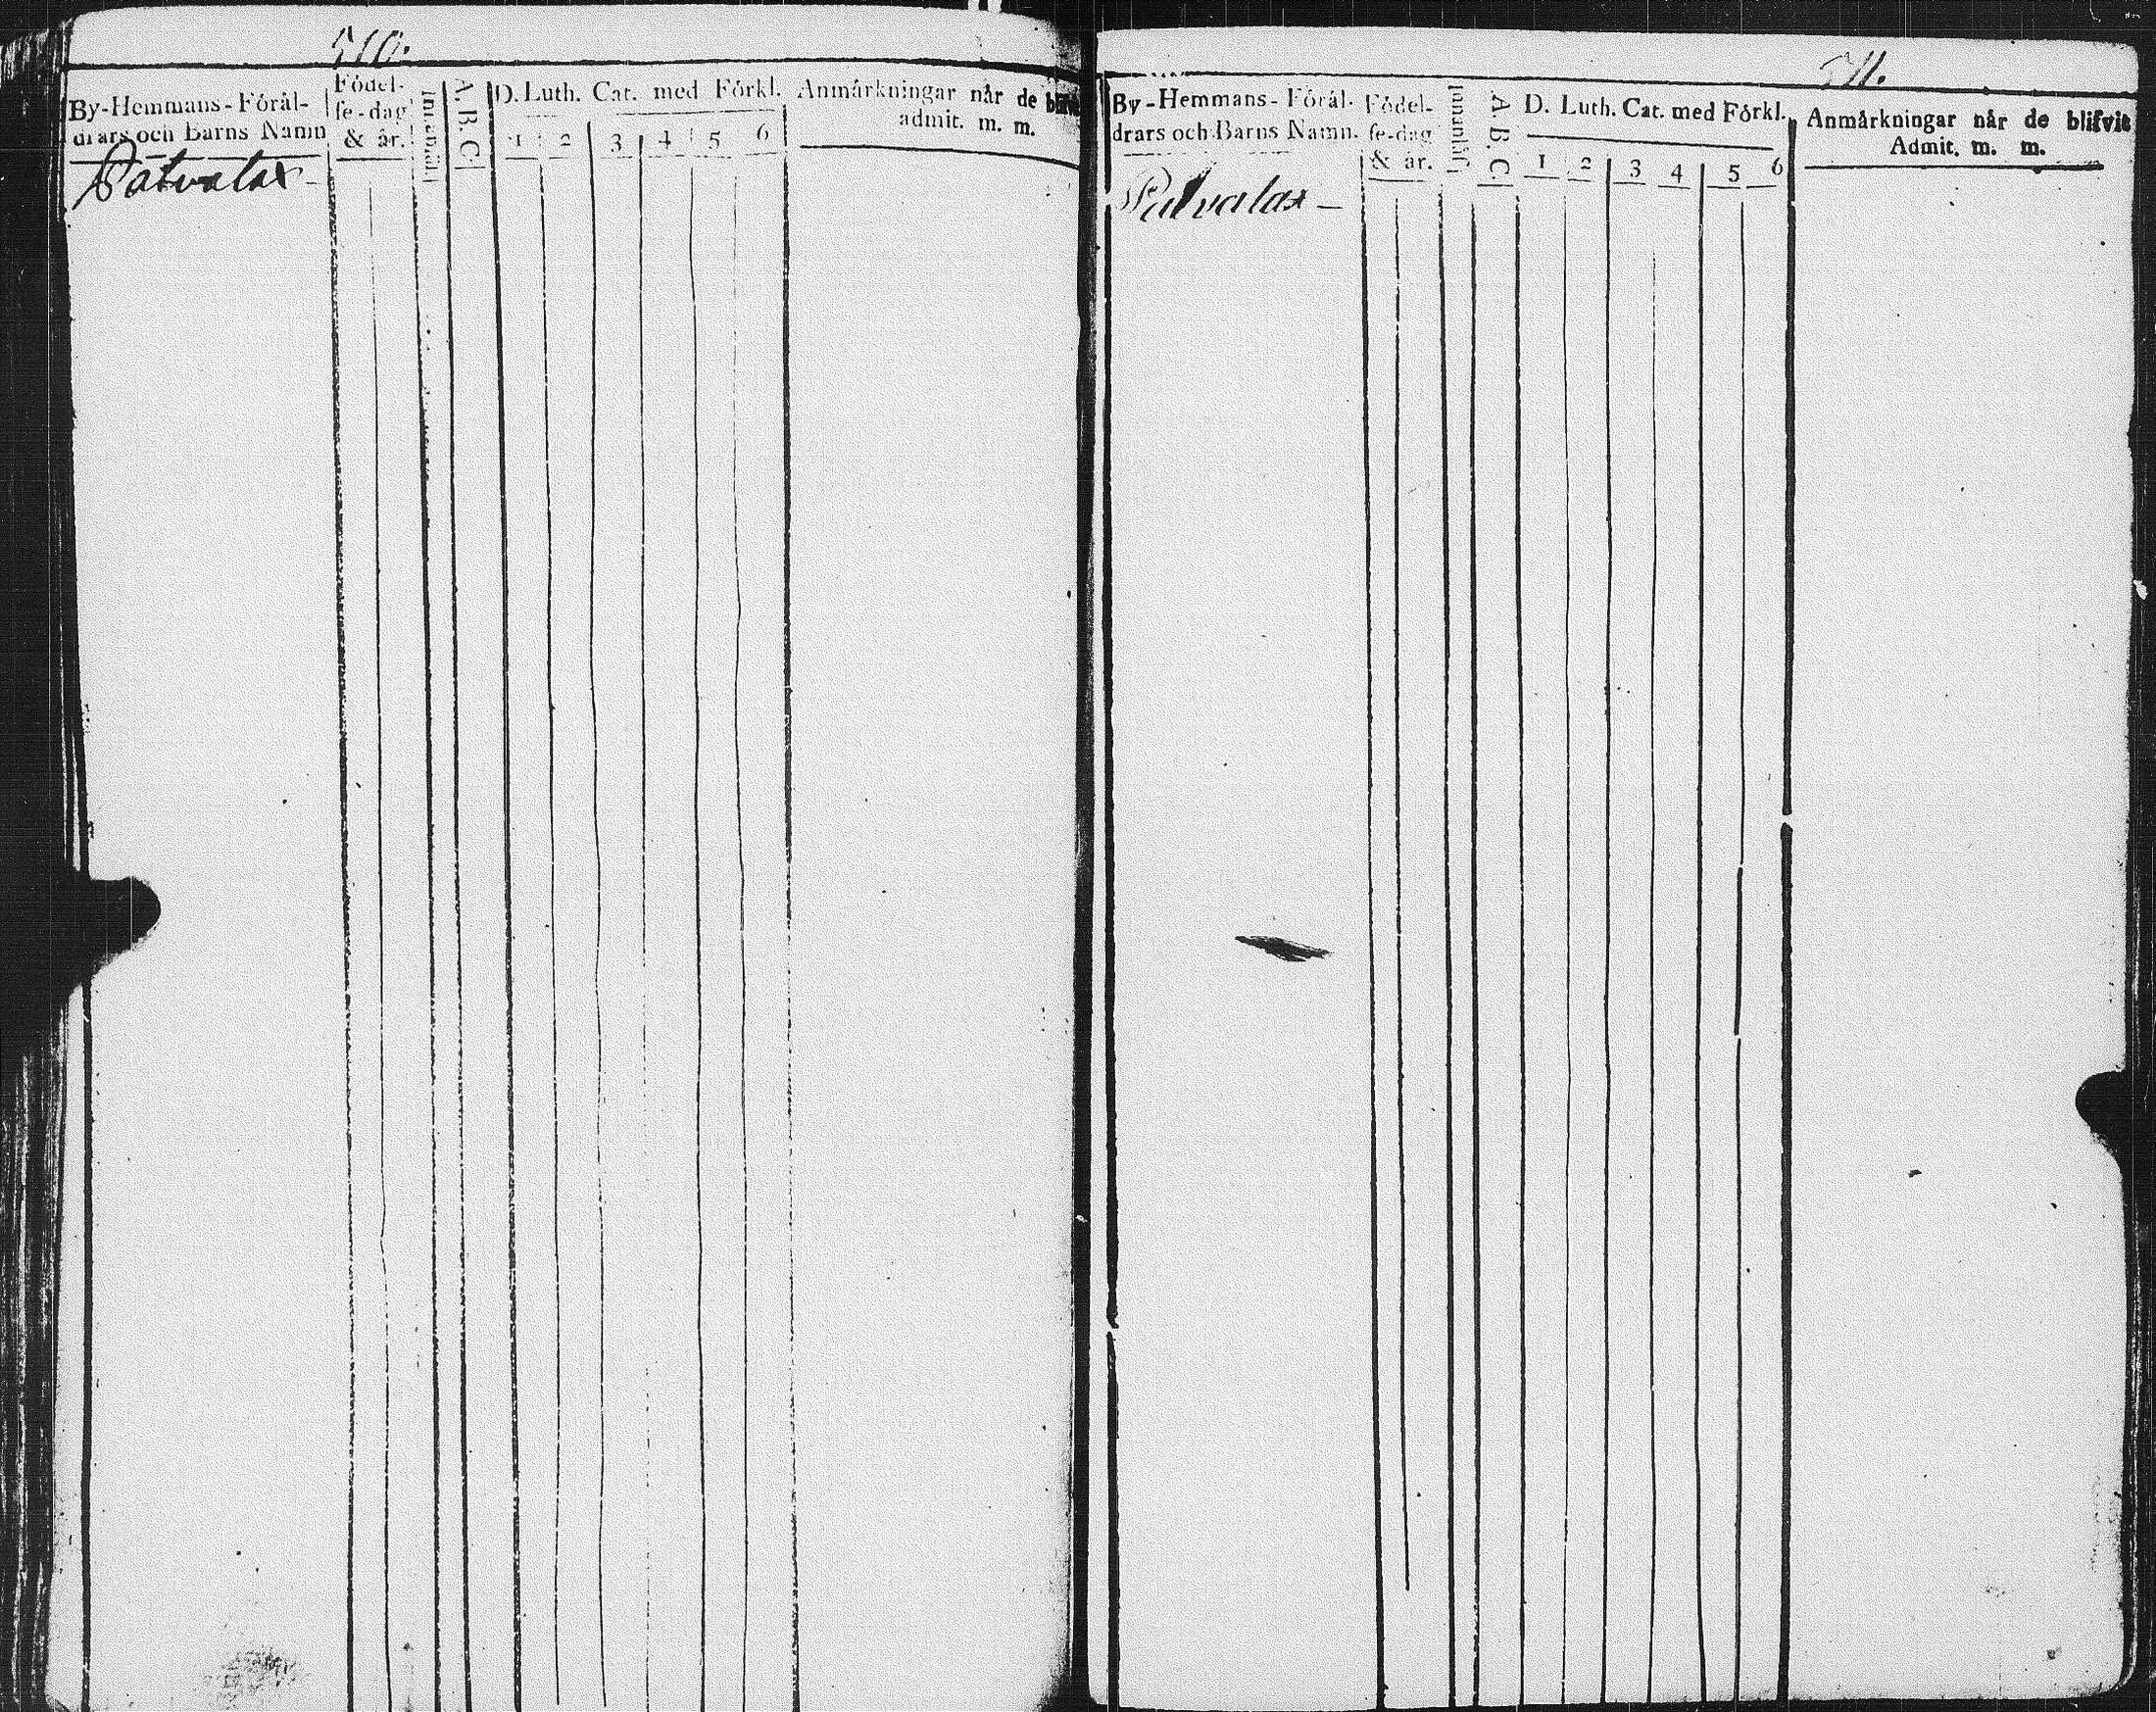 510.
By-Hemmans-Förål-
drars och Barns Namn
Födel-
se-dag
& år.
Innanläs.
A. B. C.
D. Luth. Cat. med Förkl.
1 2 3 4 5 6
Anmårkningar når de blifvit
admit. m. m.
Påtvalax
511.
By-Hemmans-Förål-
drars och Barns Namn.
Födel-
se-dag
& år.
Innanläs.
A. B. C.
D. Luth. Cat. med Förkl.
1 2 3 4 5 6
Anmårkningar når de blifvit
Admit. m. m.
Påtvalax